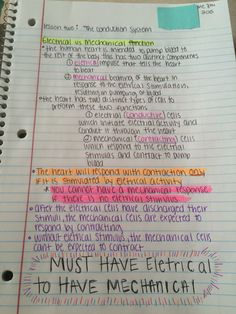 lesson two: The Conduction System
Electrical vs Mechanical function
• the human heart is intended to pump blood to
the rest of the body this has two distinct components
① eletrical impulse that tells the heart
to beat
② mechanical beating of the heart in
response to the eletrical stimulations,
resulting in pumping of blood
• the heart has two distinct types of cells to
preform these two functions
① eletrical (conductive) cells
which initiate eletrical activity and
conduct it through the heart
② mechanical (contracting) cells
which respond to the eletrical
stimulus and contract to pump
blood
• The heart will respond with contraction only
if it is stimulated by eletrical activity
* You cannot have a mechanical response
if there is no eletrical stimulus
• after the eletrical cells have discharged their
stimuli, the mechanical cells are expected to
respond by contracting
• without eletrical stimulus, the mechanical cells
can't be expected to contract
MUST HAVE Eletrical
to HAVE MECHANICAL